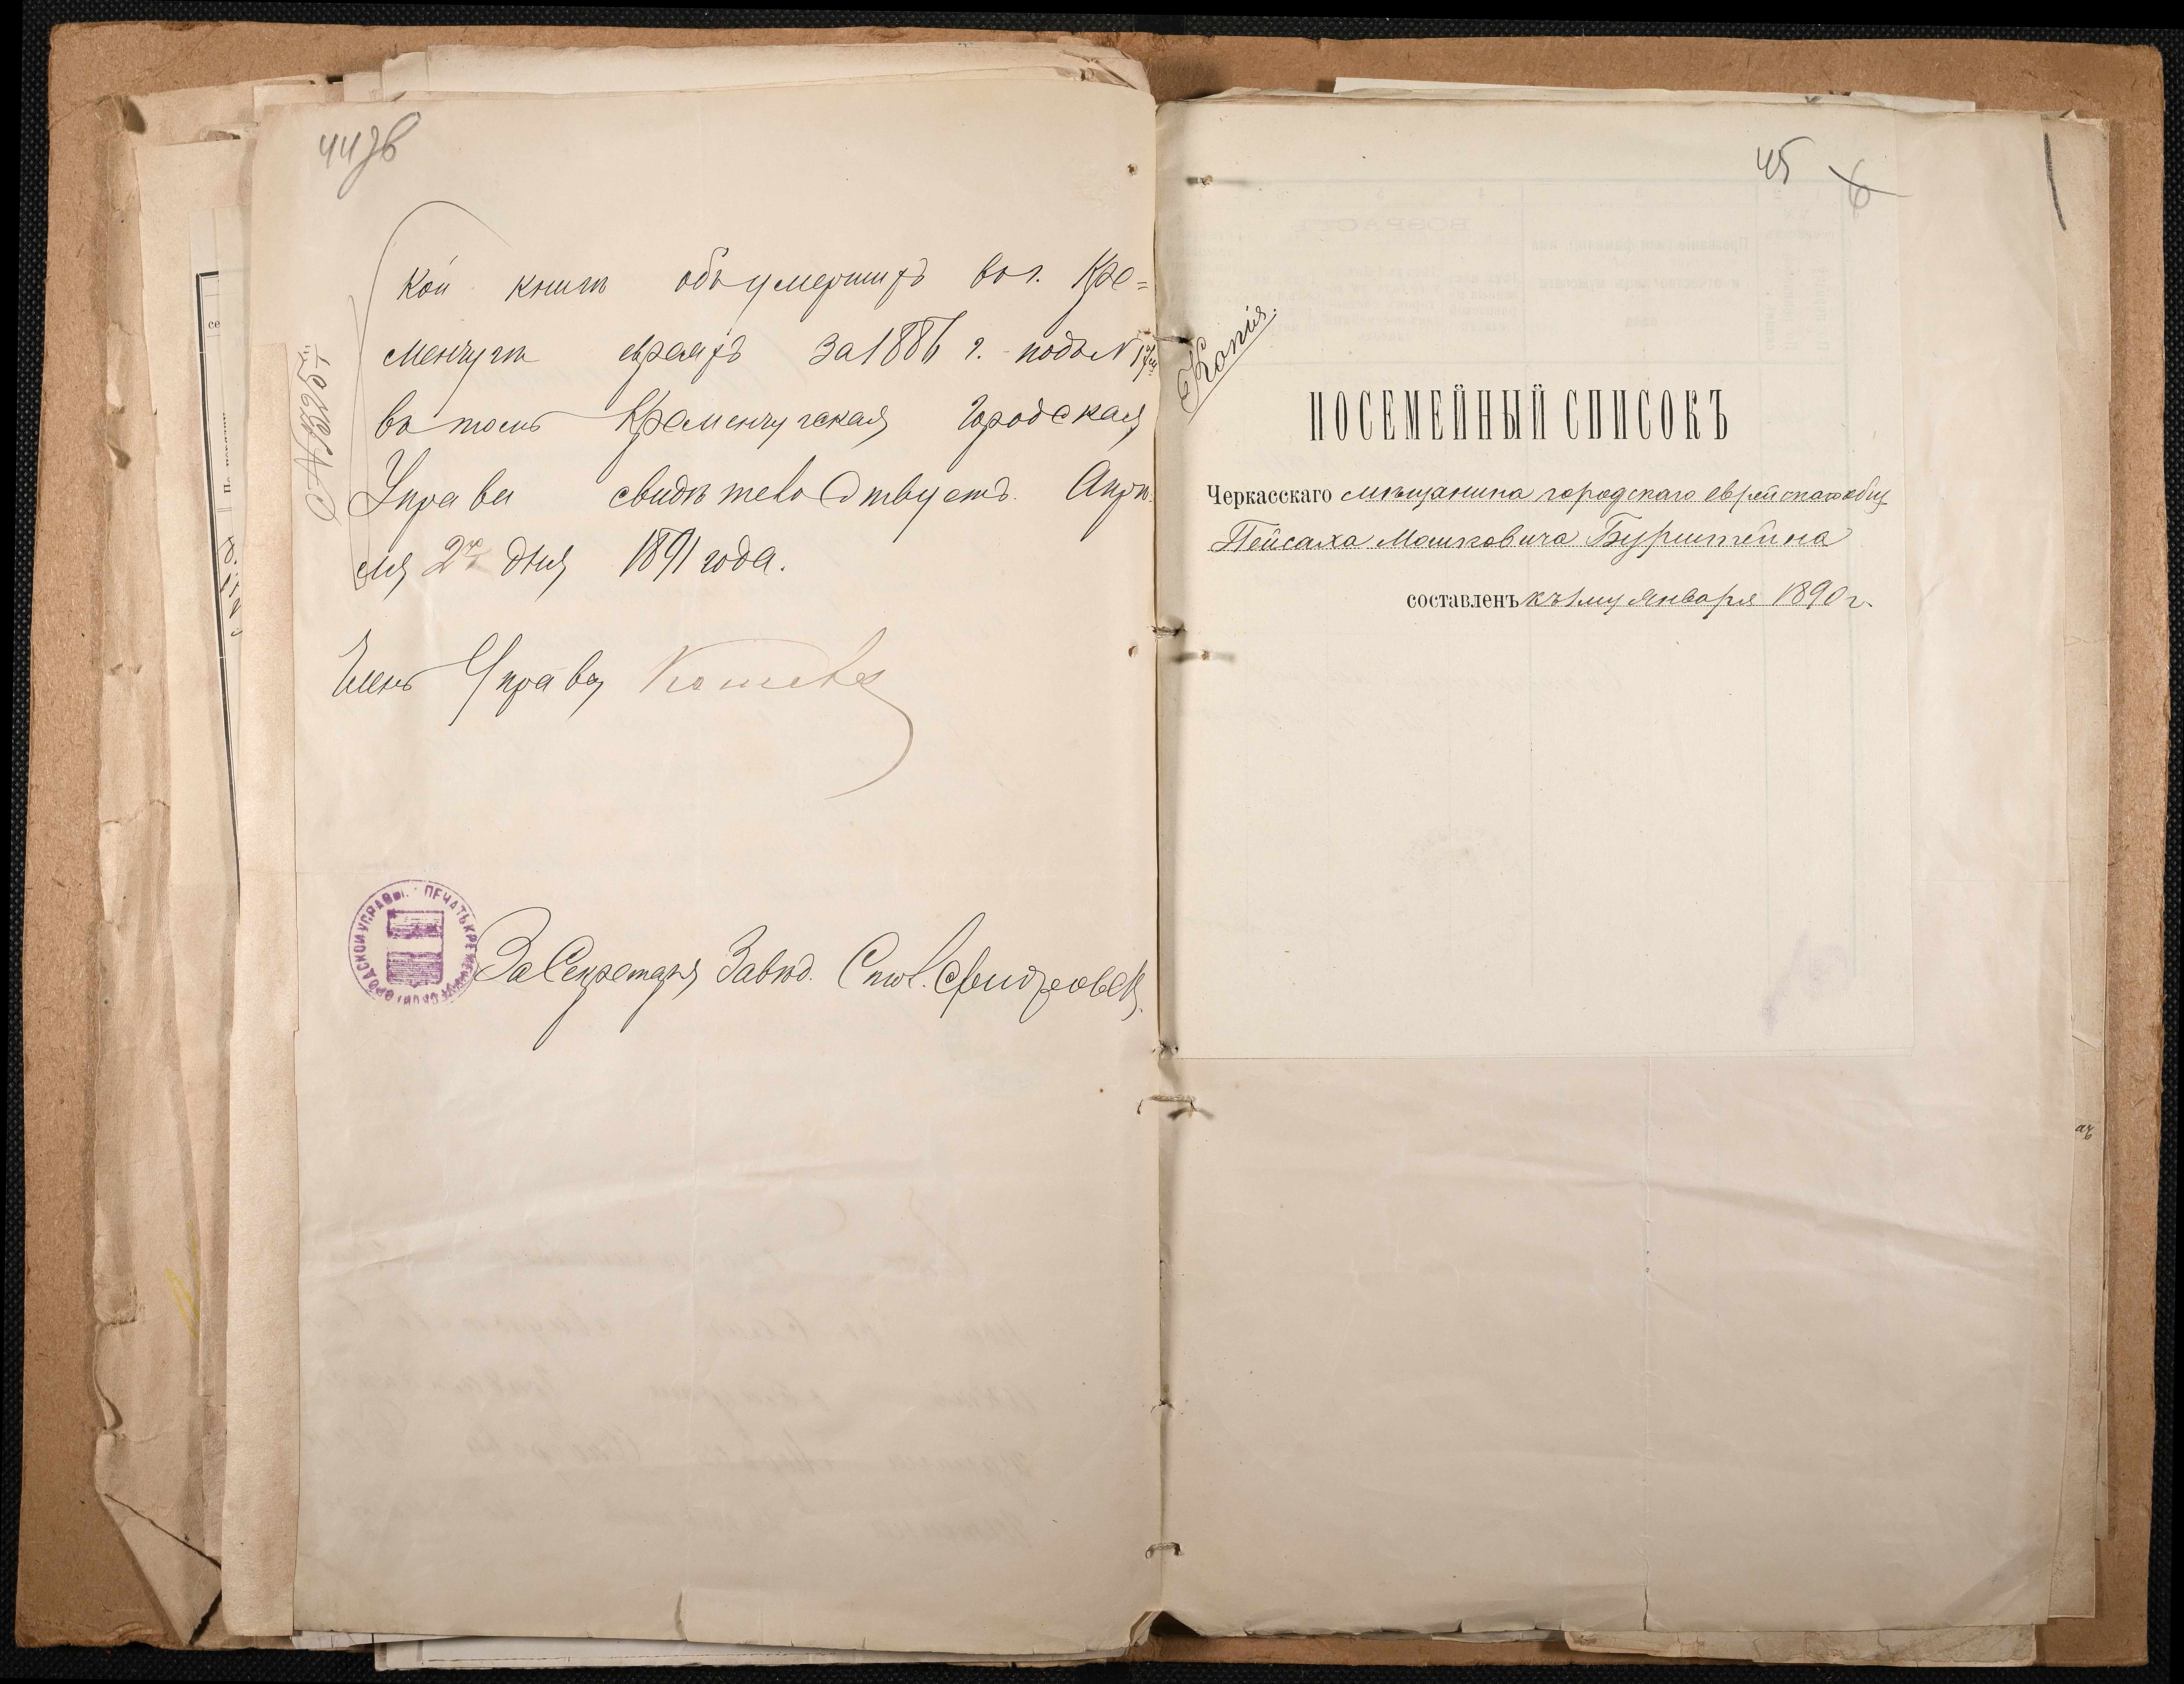 44 зв
кой книги объ умершихъ въ г. Кре=
менчугѣ евреяхъ за 1886 г. подъ №
въ томъ Кременчугская Городская
Управа свидѣтельствуетъ. Апрѣ-
ля 2го дня 1891 года.
Членъ Управы
ПЕЧАТЬ КРЕМЕНЧУГСКОЙ ГОРОДСКОЙ УПРАВЫ.
За Секретаря Завѣд.
45 6
Копія.
ПОСЕМЕЙНЫЙ СПИСОКЪ
Черкасскаго мѣщанина городскаго еврейскаго общ
Пейсаха Мошковича Бурштейна
составленъ къ 1му января 1890 г.